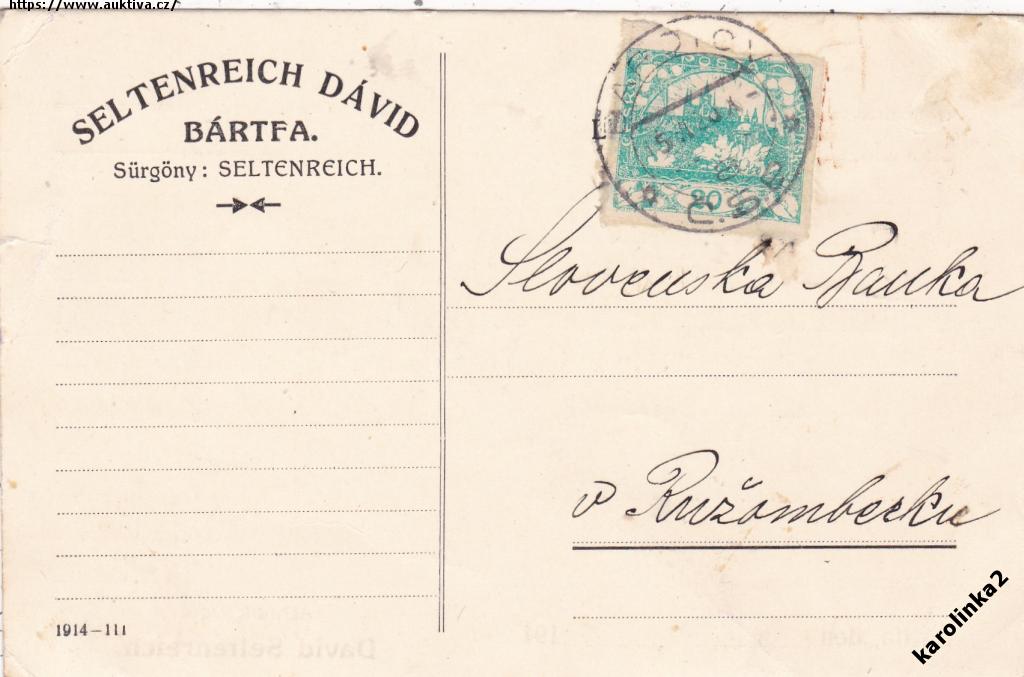 https://www.auktiva.cz/
SELTENREICH DÁVID
BÁRTFA.
Sürgöny: SELTENREICH.
20
Slovenska Banka
v Ružomberku
1914-111
David Seltenreich
191
karolinka2